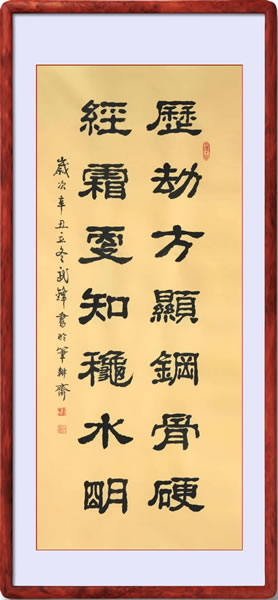 歷劫方顯鋼骨硬
經霜更知穐水明
歲次辛丑立冬武鋒書於筆耕齋